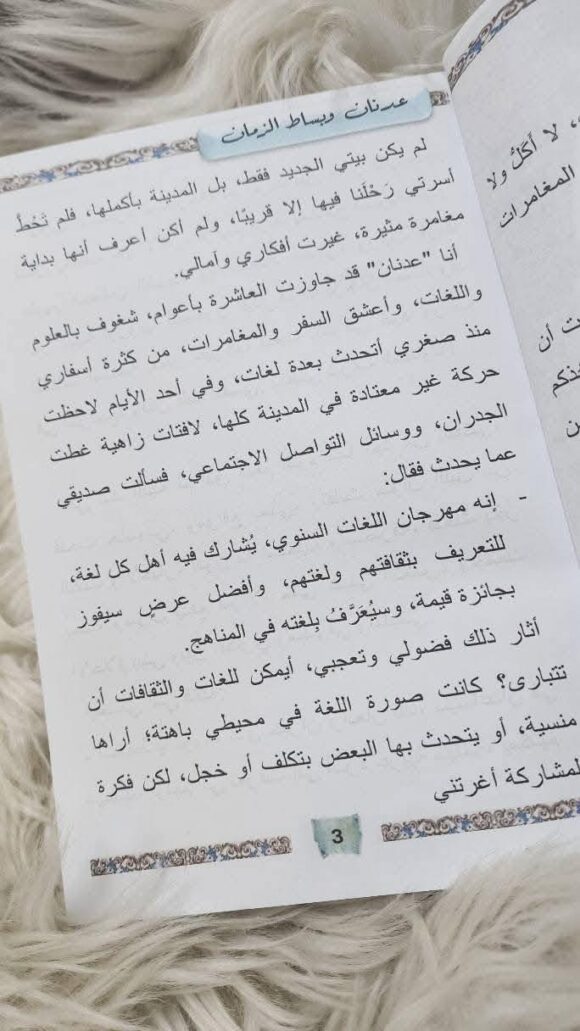 عدنان وبساط الزمان
لم يكن بيتي الجديد فقط، بل المدينة بأكملها، فلم تَخْطُ
أسرتي رَحْلَنا فيها إلا قريبًا، ولم أكن أعرف أنها بداية
مغامرة مثيرة، غيرت أفكاري وآمالي.
أنا "عدنان" قد جاوزت العاشرة بأعوام، شغوف بالعلوم
واللغات، وأعشق السفر والمغامرات، من كثرة أسفاري
منذ صغري أتحدث بعدة لغات، وفي أحد الأيام لاحظت
حركة غير معتادة في المدينة كلها، لافتات زاهية غطت
الجدران، ووسائل التواصل الاجتماعي، فسألت صديقي
عما يحدث فقال:
- إنه مهرجان اللغات السنوي، يُشارك فيه أهل كل لغة،
للتعريف بثقافتهم ولغتهم، وأفضل عرضٍ سيفوز
بجائزة قيمة، وسيُعَرَّفُ بِلغته في المناهج.
أثار ذلك فضولي وتعجبي، أيمكن للغات والثقافات أن
تتبارى؟ كانت صورة اللغة في محيطي باهتة؛ أراها
منسية، أو يتحدث بها البعض بتكلف أو خجل، لكن فكرة
لمشاركة أغرتني
3
لا أكَلُّ ولا
المغامرات
أن